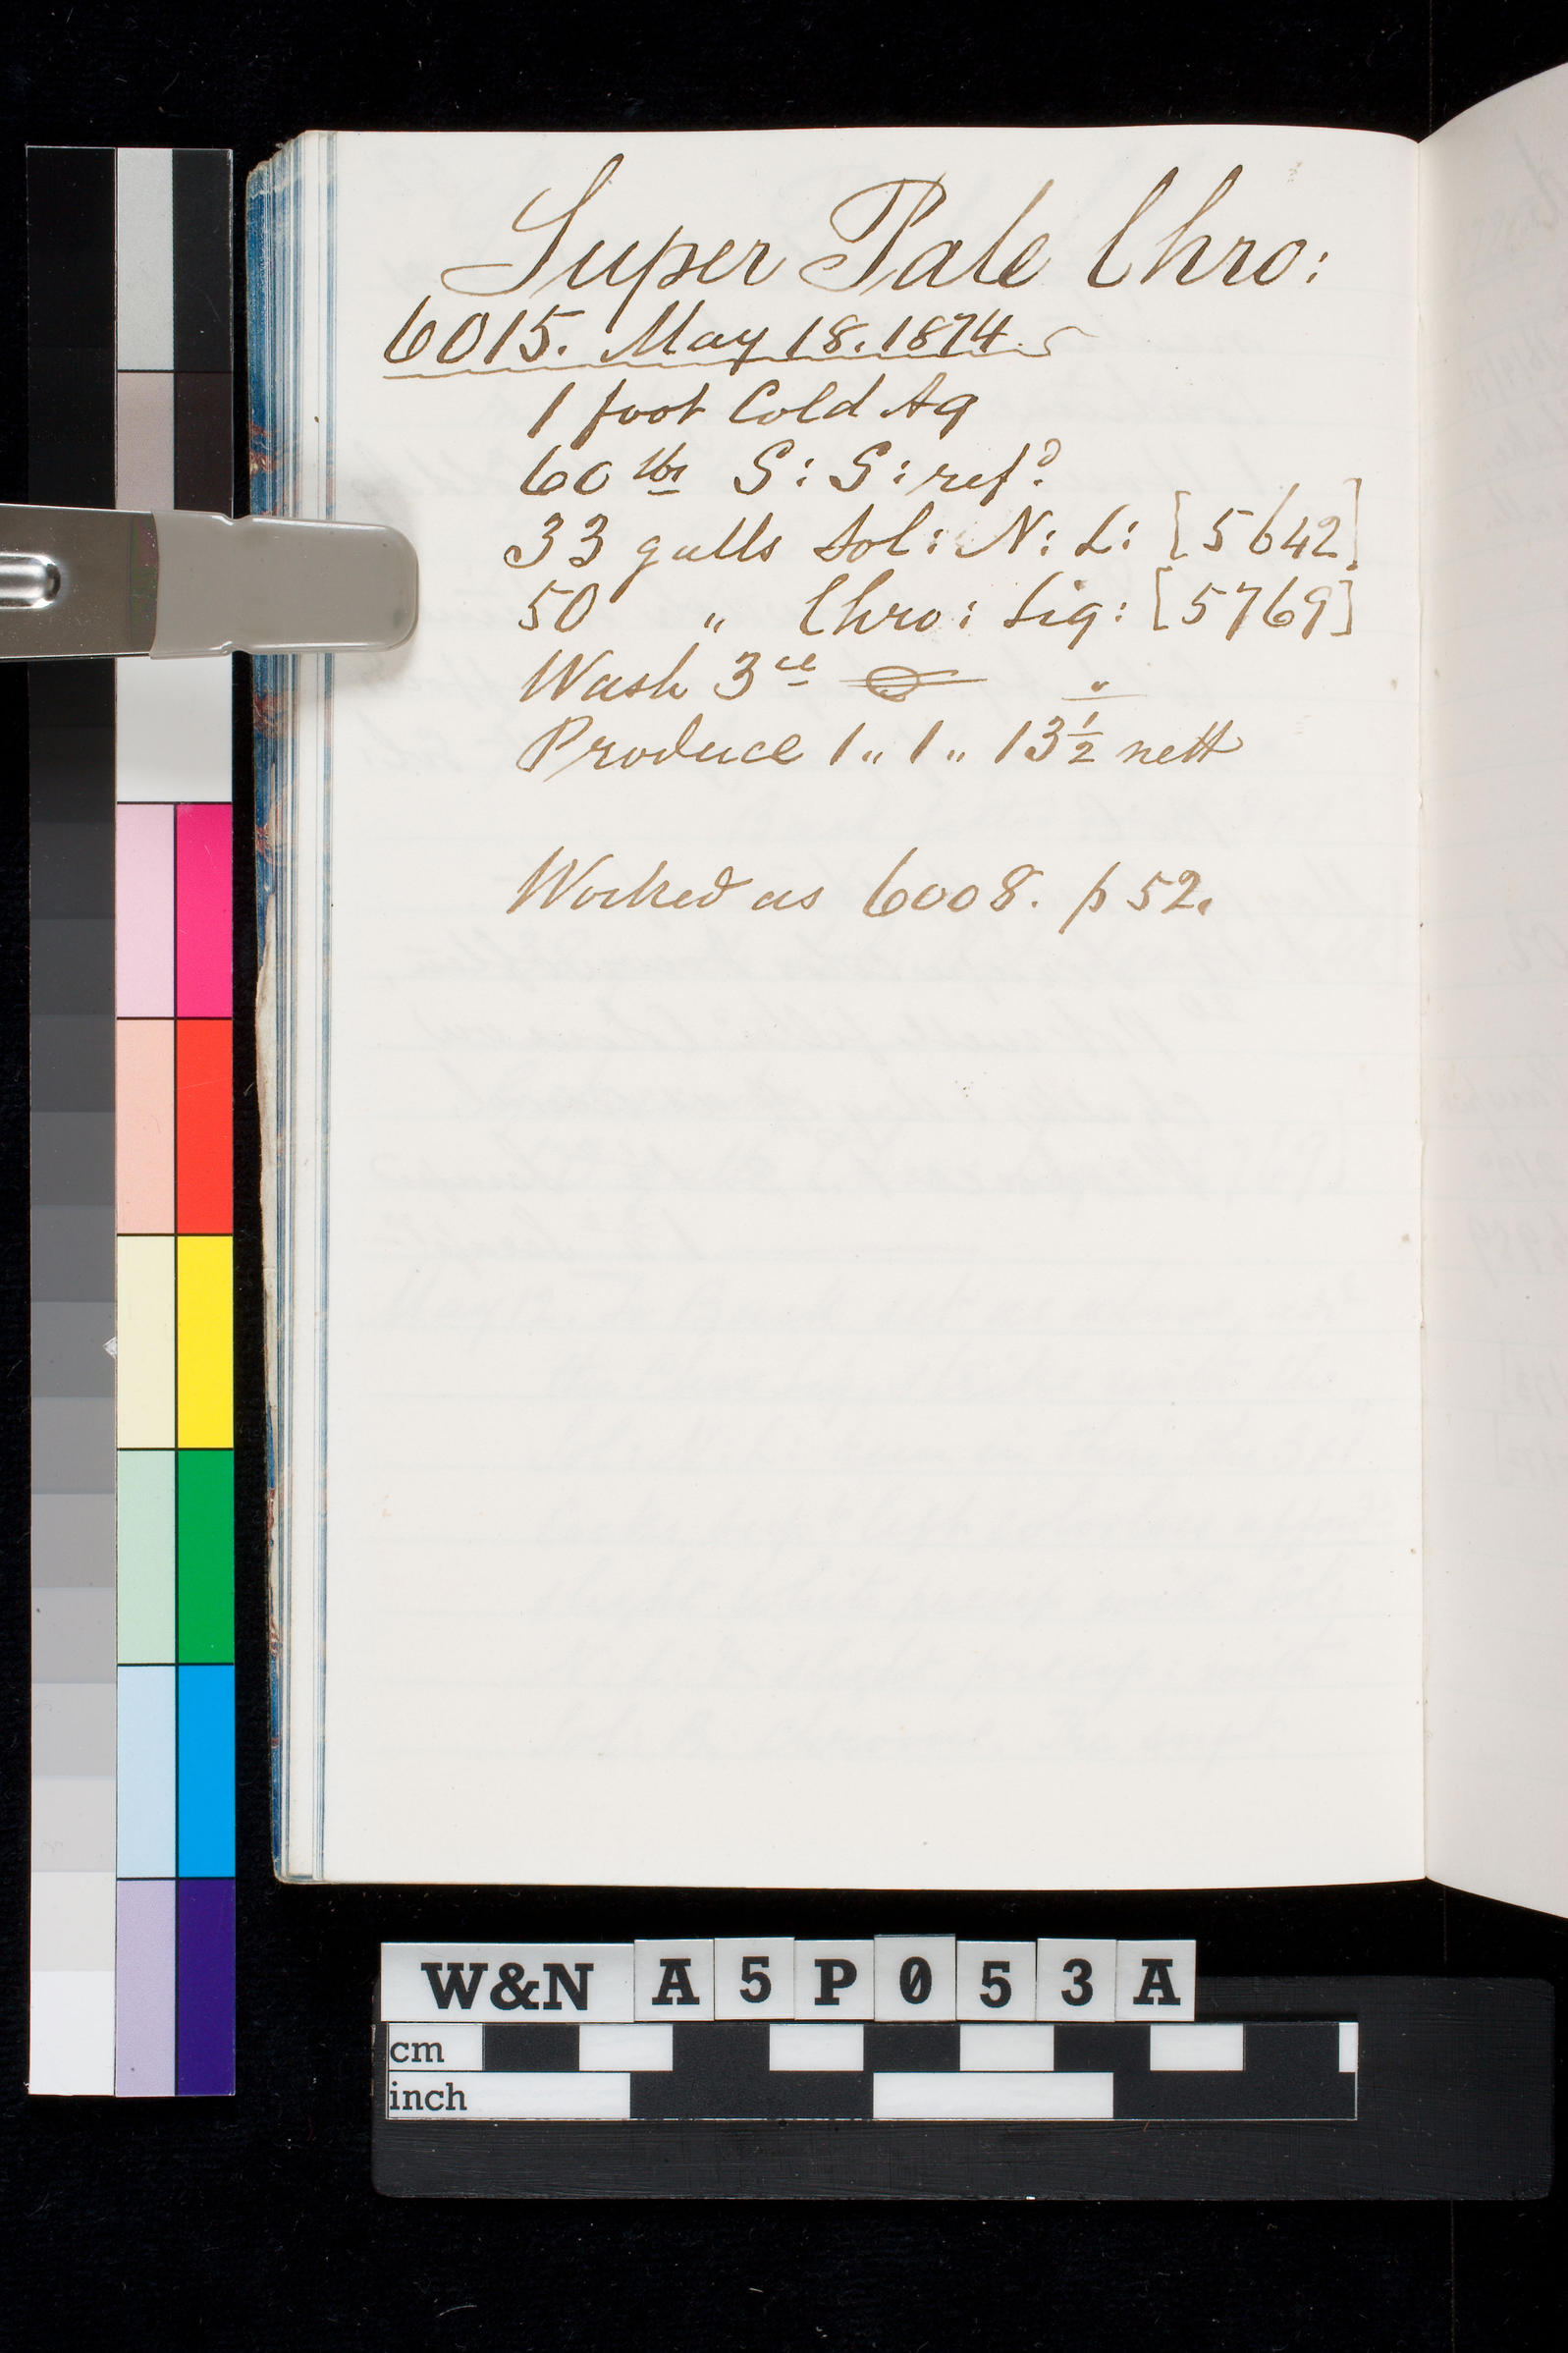 Super Pale Chro:
6015. May 18. 1874.
1 foot Cold Aq
60 lbs S: S: refd.
33 galls Sol: N: L: [5642]
50 " Chro: Liq: [5769]
Wash 3ce
Produce 1 " 1 " 13 1/2 nett
Worked as 6008. p 52.
W&N A5P053A
cm
inch